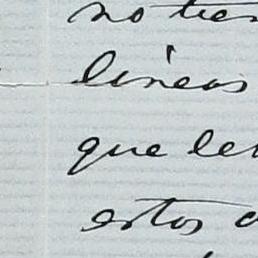 no tien
lineas
que le
estos